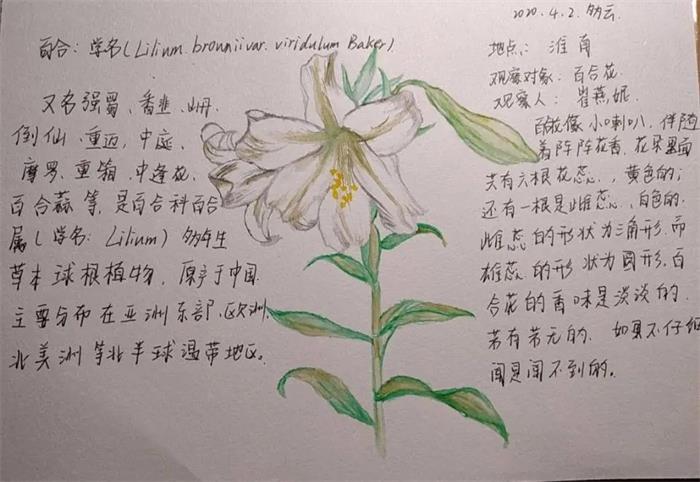 2020.4.2. 多云.
百合：学名(Lilium brouniivar. viridulum Baker).
又名强蜀、番韭、山丹、
倒仙、重迈、中庭、
摩罗、重箱、中逢花、
百合蒜等，是百合科百合
属(学名：Lilium)多年生
草本球根植物，原产于中国.
主要分布在亚洲东部、欧洲、
北美洲等北半球温带地区。
地点：淮南
观察对象：百合花.
观察人：崔燕妮.
百花像小喇叭，伴随
着阵阵花香，花朵里面
共有六根花蕊、黄色的；
还有一根是雌蕊、白色的.
雌蕊的形状为三角形.而
雄蕊的形状为圆形.百
合花的香味是淡淡的.
若有若无的.如果不仔细
闻是闻不到的。